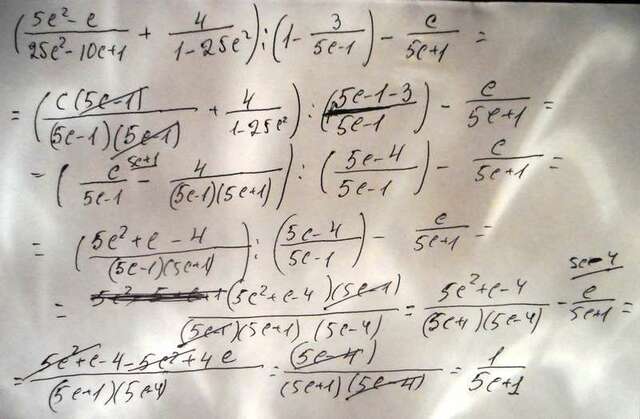 (5c²-c/25c²-10c+1 + 4/1-25c²):(1-3/5c-1)-c/5c+1=
=(c(5c-1)/(5c-1)(5c-1) + 4/1-25c²):(5c-1-3/5c-1)-c/5c+1=
=(c/5c-1 5c+1 - 4/(5c-1)(5c+1)):(5c-4/5c-1)-c/5c+1=
=(5c²+c-4/(5c-1)(5c+1)):(5c-4/5c-1)-c/5c+1=
=(5c²+c-4)(5c-1)/(5c-1)(5c+1)(5c-4)=5c²+c-4/(5c+1)(5c-4)-c/5c+1 5c-4=
=5c²+c-4-5c²+4c/(5c+1)(5c-4)=(5c-4)/(5c+1)(5c-4)=1/5c+1